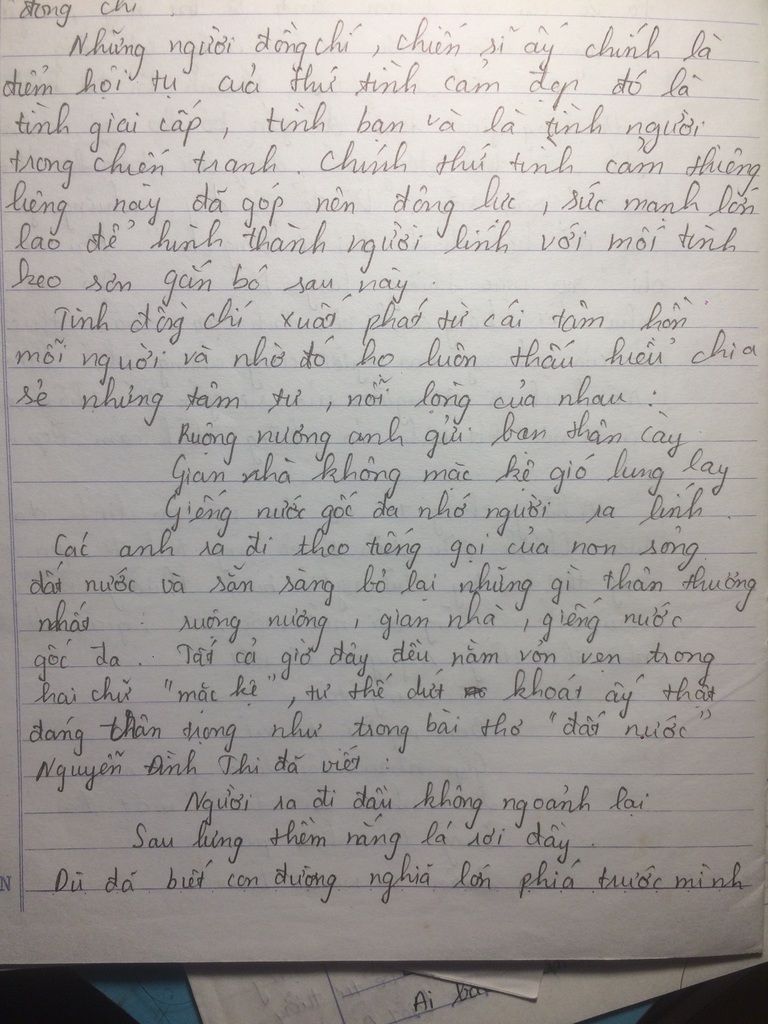 đồng chí .
Những người đồng chí , chiến sĩ ấy chính là
điểm hội tụ của thứ tình cảm đẹp đó là
tình giai cấp , tình bạn và là tình người
trong chiến tranh . Chính thứ tình cảm thiêng
liêng này đã góp nên động lực , sức mạnh lớn
lao để hình thành người lính với mối tình
keo sơn gắn bó sau này .
Tình đồng chí xuất phát từ cái tâm hồn
mỗi người và nhờ đó họ luôn thấu hiểu chia
sẻ những tâm tư , nỗi lòng của nhau :
Ruộng nương anh gửi bạn thân cày
Gian nhà không mặc kệ gió lung lay
Giếng nước gốc đa nhớ người ra lính .
Các anh ra đi theo tiếng gọi của non sông
đất nước và sẵn sàng bỏ lại những gì thân thương
nhất : ruộng nương , gian nhà , giếng nước
gốc đa . Tất cả giờ đây đều nằm vỏn vẹn trong
hai chữ "mặc kệ" , tư thế dứt khoát ấy thật
đáng trân trọng như trong bài thơ "đất nước"
Nguyễn Đình Thi đã viết :
Người ra đi đầu không ngoảnh lại
Sau lưng thềm nắng lá rơi đầy .
Dù đã biết con đường nghĩa lớn phía trước mình
Ai